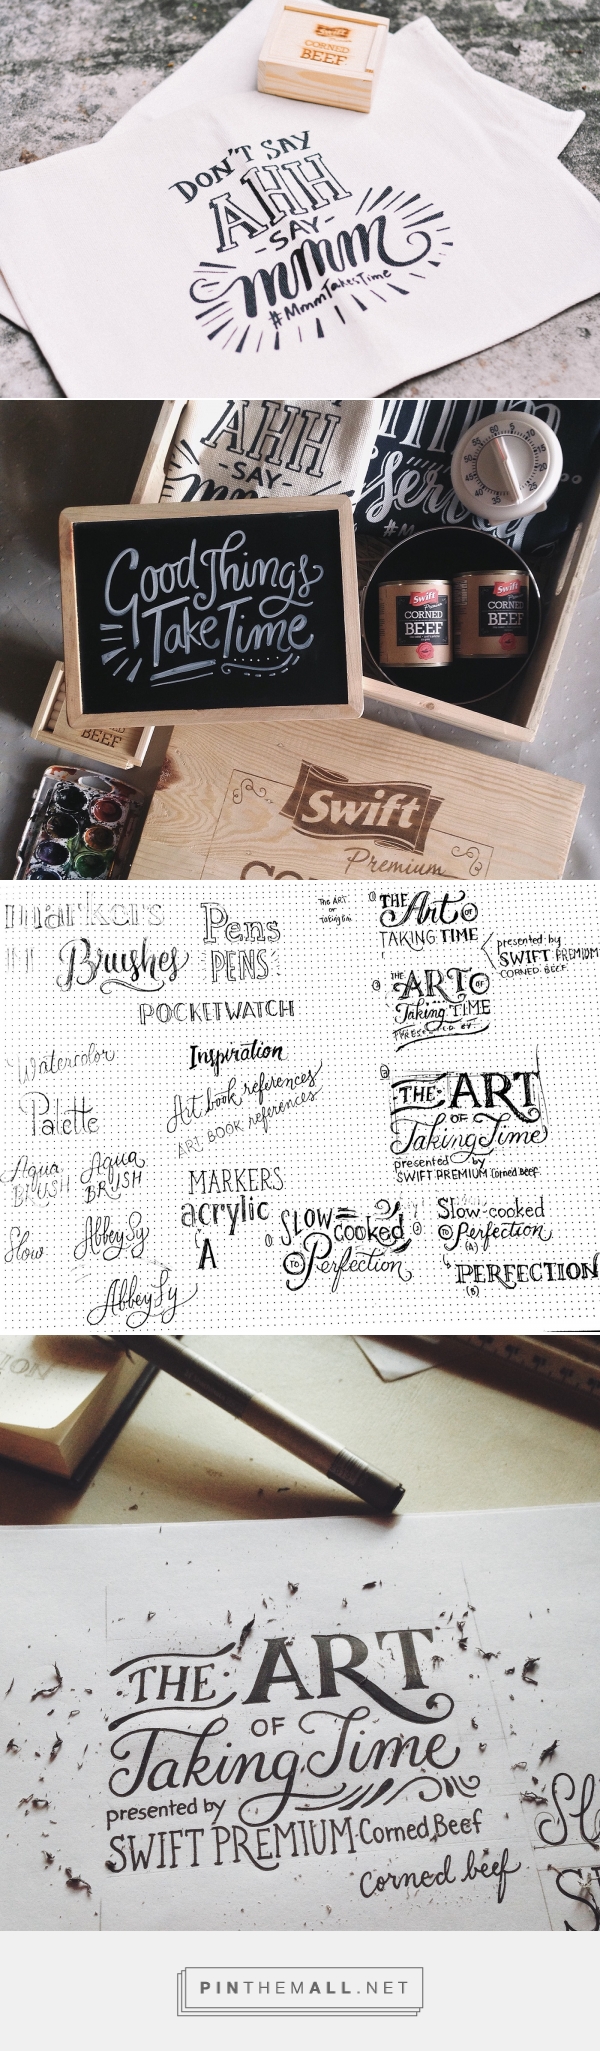 Swift
CORNED
BEEF
DON'T SAY
AHH
-SAY-
mmm
#MmmTakesTime
AHH
-SAY-
mmm
served
#M
60
5
55
50
45
40
35
25
Good Things
Take Time
Swift
Premium
CORNED
BEEF
Swift
CORNED
BEEF
BEEF
Swift
Premium
markers
Brushes
Pens
PENS
POCKETWATCH
THE ART
OF
Taking Time
1
THE Art OF
TAKING TIME
presented by
SWIFT PREMIUM
CORNED BEEF
THE
ART OF
Taking TIME
PRESENTED BY
Watercolor
Palette
Inspiration
Art book references
ART BOOK references
3
THE ART
OF
Taking Time
presented by
SWIFT PREMIUM Corned Beef
Aqua
BRUSH
Aqua
BRUSH
Slow
Abbey Sy
Abbey Sy
MARKERS
acrylic
A
1
SLOW
cooked
TO Perfection
2
Slow-cooked
TO Perfection
(A)
PERFECTION
(B)
ION
THE ART
OF
Taking Time
presented by
SWIFT PREMIUM Corned Beef
Corned beef
Sl
S
PINTHEMALL.NET